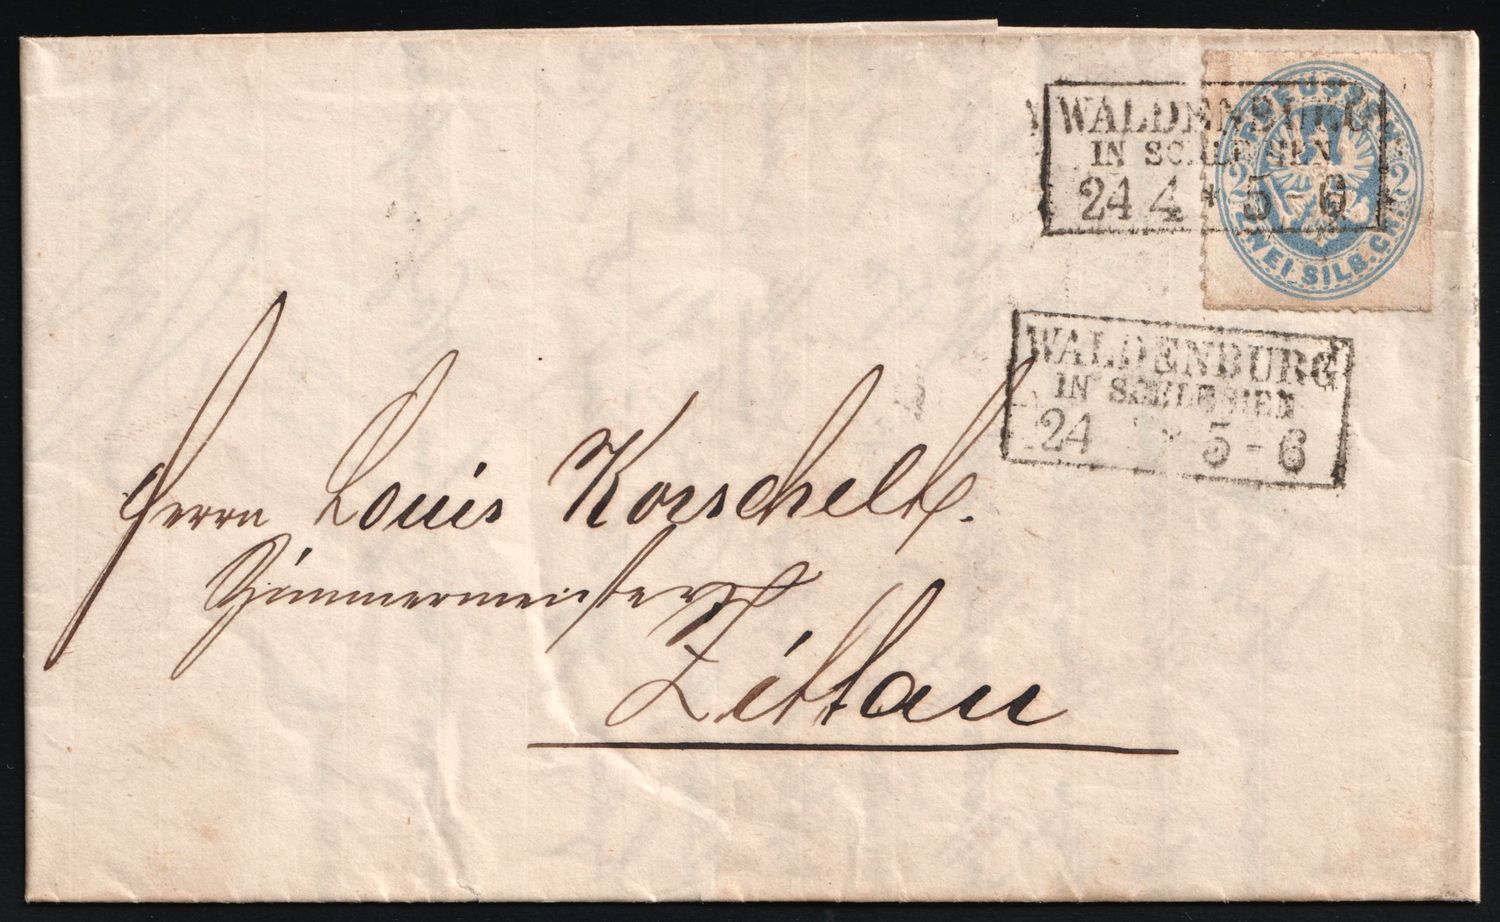 WALDENBURG
IN SCHLESIEN
24 4 * 5-6
PREUSSEN
2 2
ZWEI. SILB. GR.
WALDENBURG
IN SCHLESIEN
24 * 5-6
Herrn Louis Korschelt.
Zimmermeister
Zittau